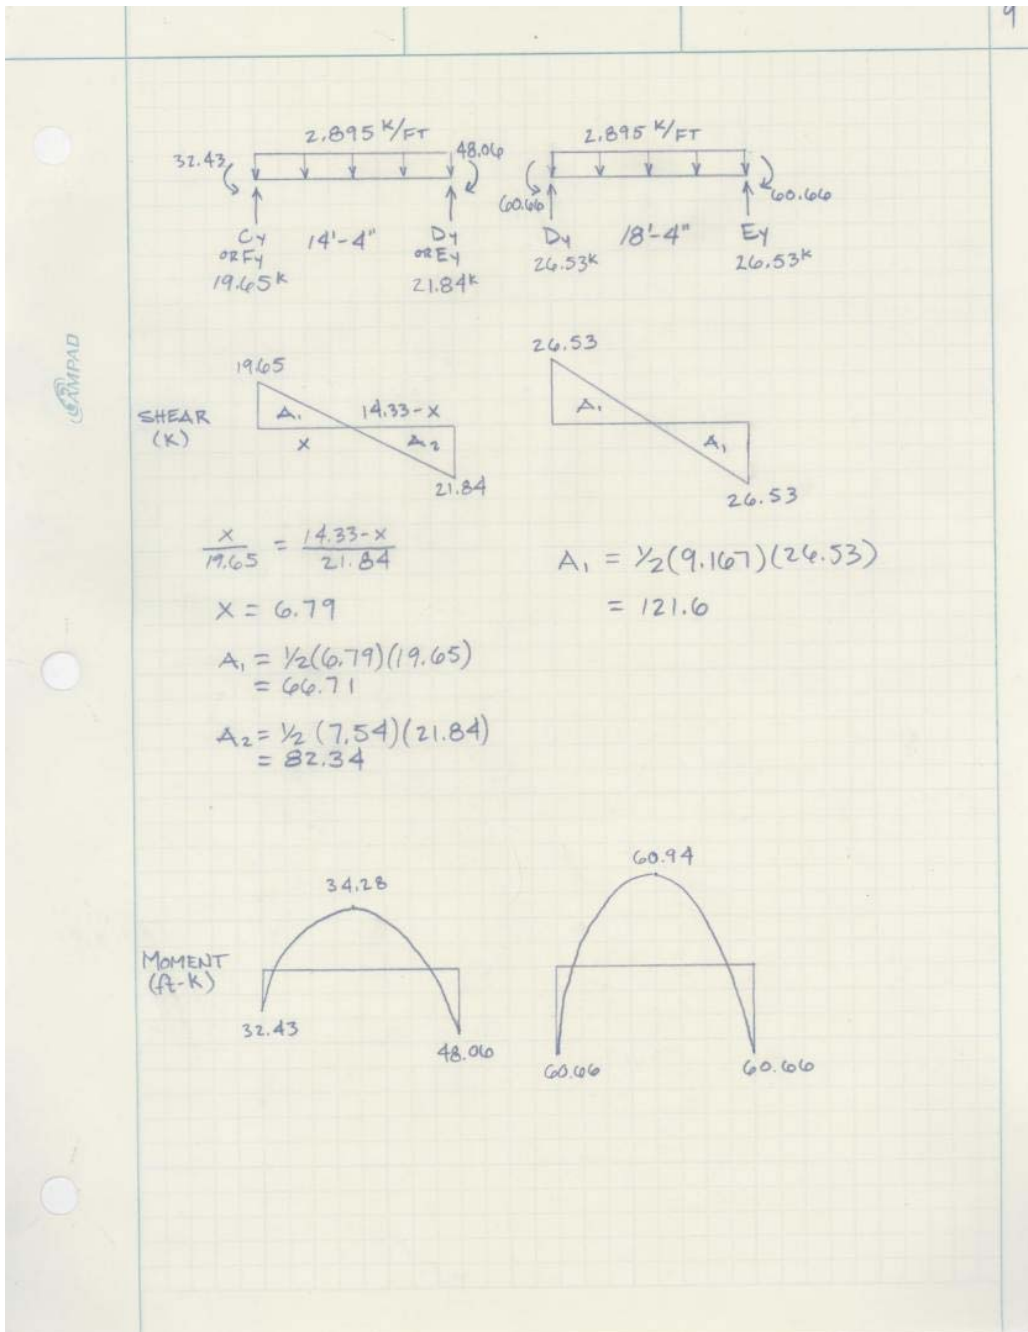 9
2.895 K/FT
32.43
48.06
CY
OR FY
19.65K
14'-4"
DY
OR EY
21.84K
2.895 K/FT
60.66
60.66
DY
26.53K
18'-4"
EY
26.53K
AMPAD
SHEAR
(K)
19.65
A1
14.33-X
X
A2
21.84
26.53
A1
A1
26.53
X/19.65 = 14.33-X/21.84
X = 6.79
A1 = 1/2(6.79)(19.65)
= 66.71
A2 = 1/2 (7.54)(21.84)
= 82.34
A1 = 1/2(9.167)(26.53)
= 121.6
MOMENT
(ft-K)
34.28
32.43
48.06
60.94
60.66
60.66